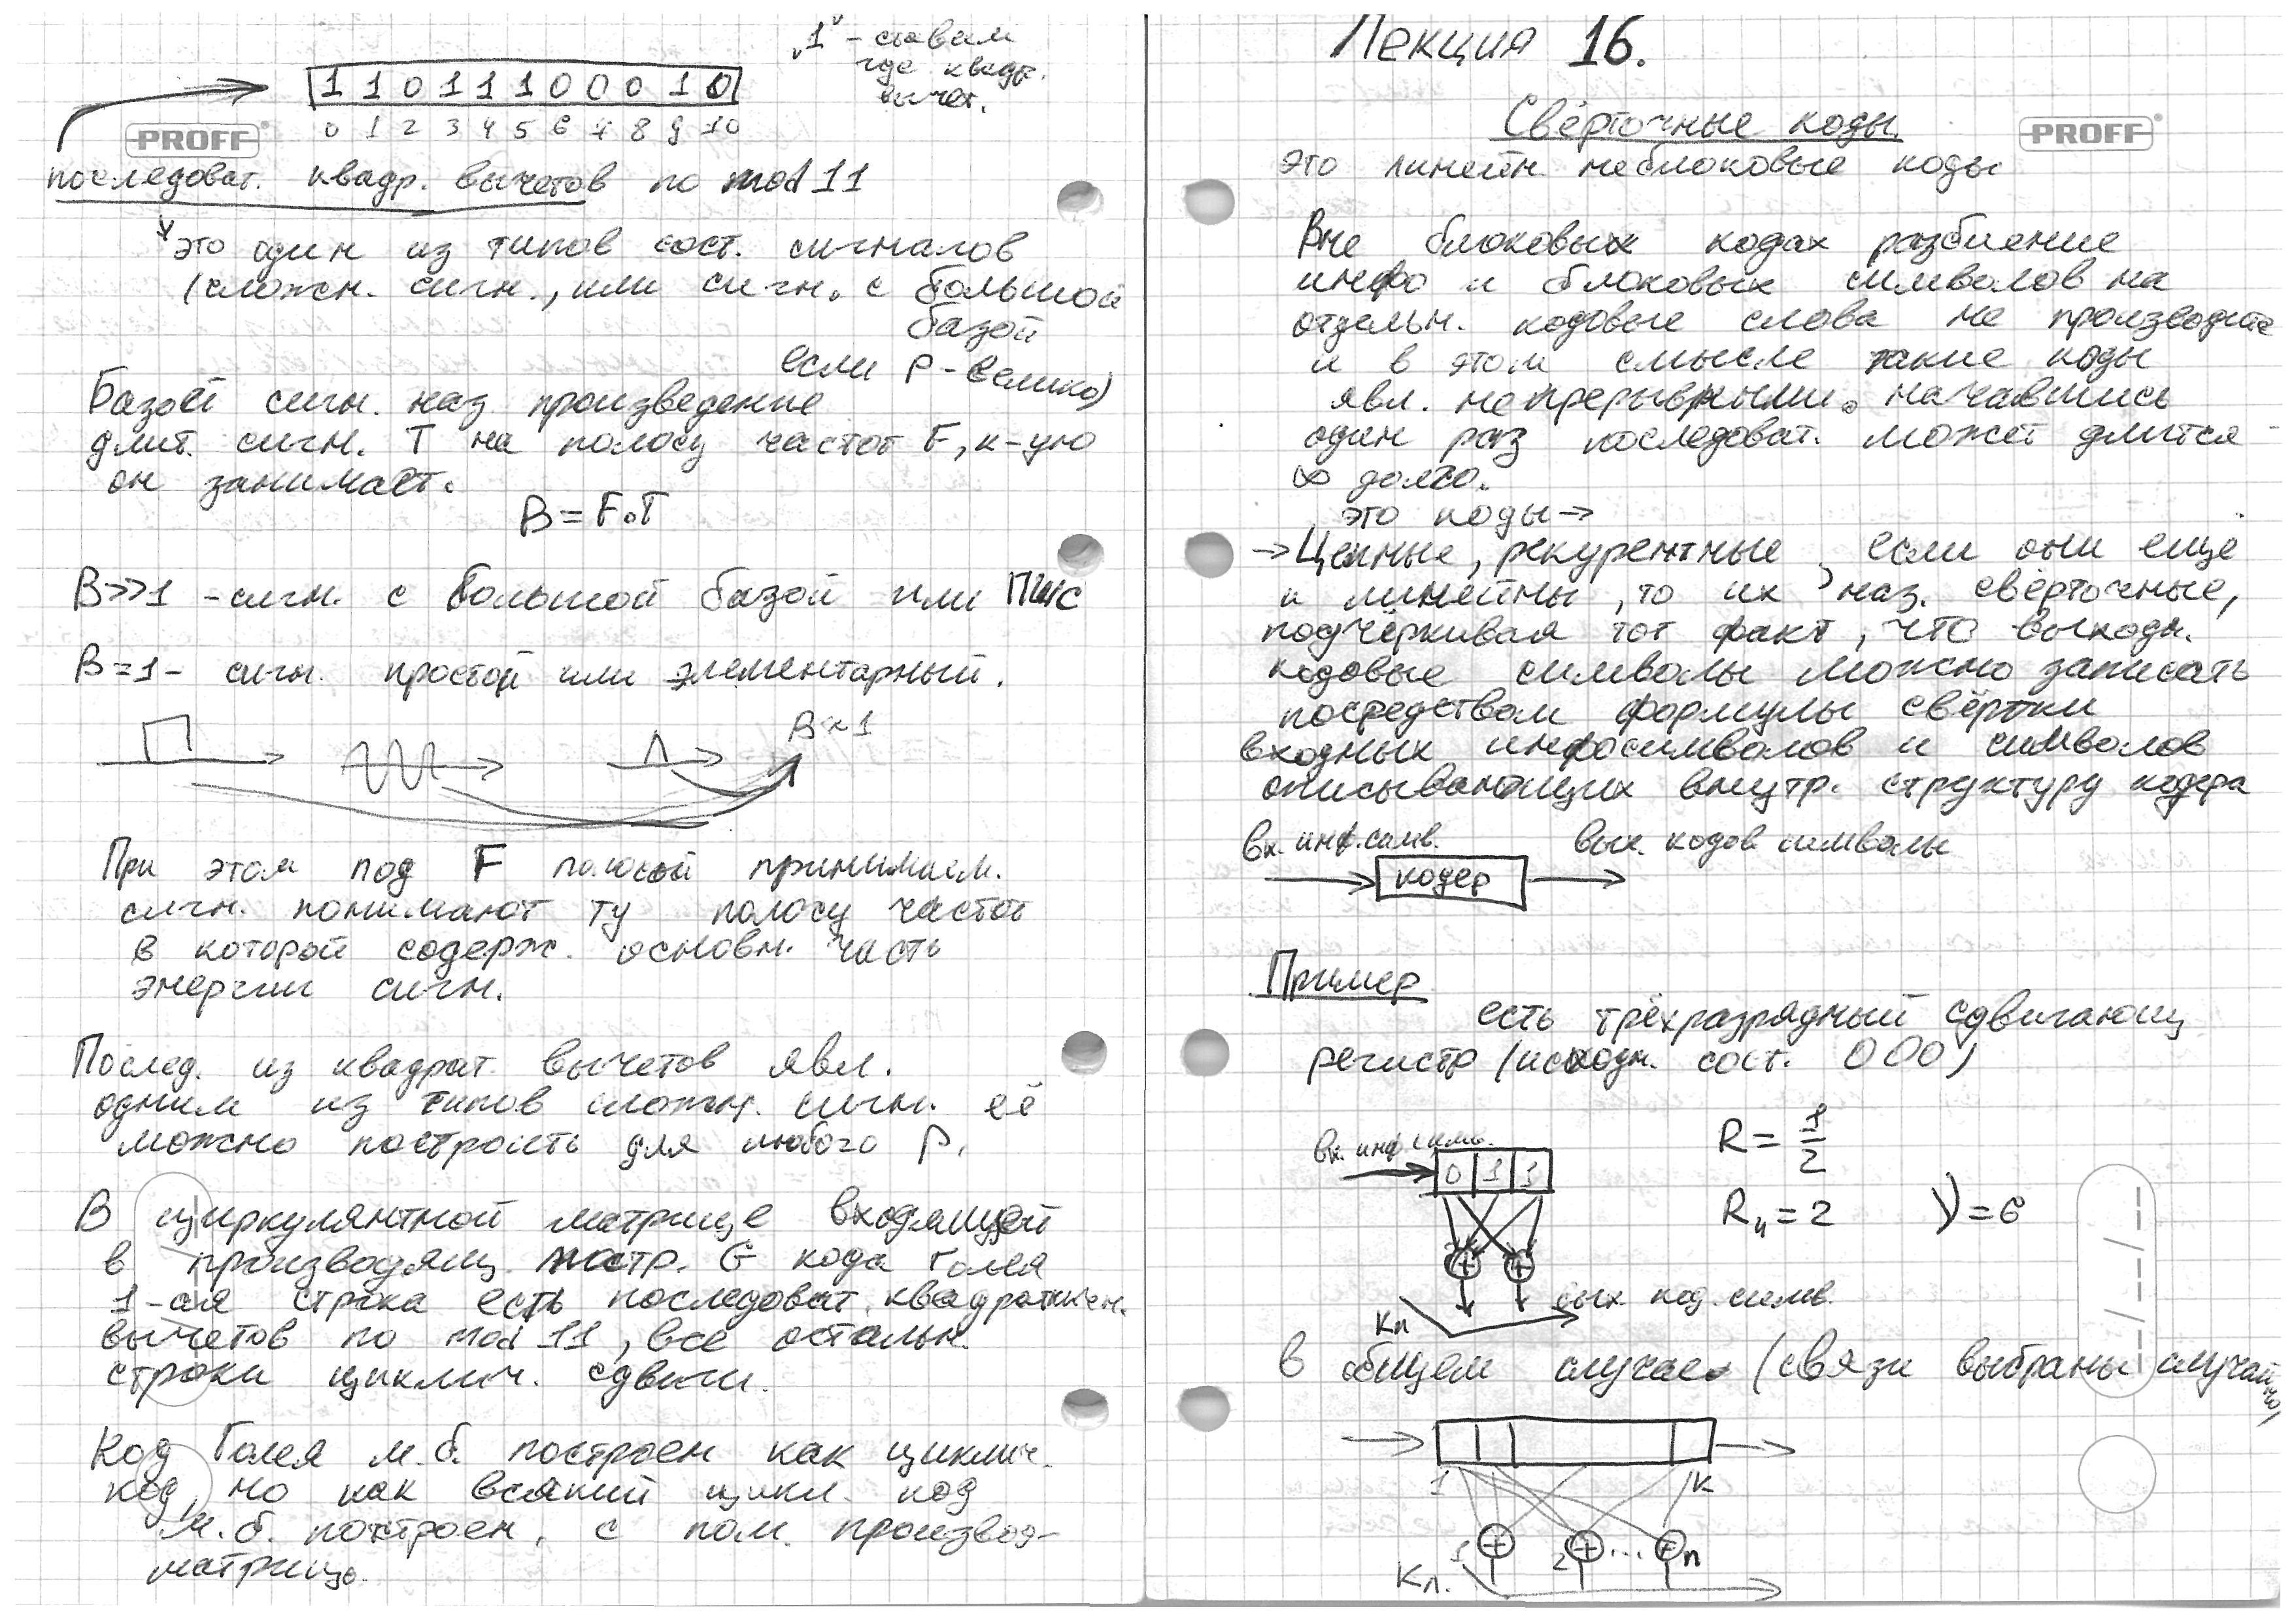 „1“ - ставим
где квадр.
вычет.
1 1 0 1 1 1 0 0 0 1 0
0 1 2 3 4 5 6 7 8 9 10
PROFF
последоват. квадр. вычетов по mod 11
это один из типов сост. сигналов
(сложн. сигн., или сигн. с большой
базой
если p - велико)
Базой сигн. наз. произведение
длит. сигн. T на полосу частот F, к-ую
он занимает.
B = F∘T
B>>1 - сигн. с большой базой или ПШС
B=1 - сигн. простой или элементарный.
B≈1
При этом под F полосой принимаем.
сигн. понимают ту полосу частот
в которой содерж. основн. часть
энергии сигн.
Послед. из квадрат. вычетов явл.
одним из типов сложн. сигн. её
можно построить для любого p.
В циркулянтной матрице входящей
в производящ. матр. G кода Голея
1-ая строка есть последоват. квадратичн.
вычетов по mod 11, все остальн.
строки циклич. сдвиги.
Код Голея м.б. построен как циклич.
код, но как всякий цикл. код
м.б. построен, с пом. производ-
матрицы.
Лекция 16.
Свёрточные коды.
PROFF
это линейн. неблоковые коды
В не блоковых кодах разбиение
инфо и блоковых символов на
отдельн. кодовые слова не производится
и в этом смысле такие коды
явл. непрерывными. начавшись
один раз последоват. может длится
∞ долго.
это коды →
→ Цепные, рекурентные, если они ещё
и линейны, то их наз. свёрточные,
подчёркивая тот факт, что выходн.
кодовые символы можно записать
посредством формулы свёртки
входных инфосимволов и символов
описывающих внутр. структуру кодера
вх. инф. симв. вых. кодов. символы
кодер
Пример
есть трёхразрядный сдвигающ
регистр (исходн. сост. 000)
вх. инф симв.
0 1 1
R = 1/2
R₄ = 2 ν = 6
вых. код. симв.
Кл
в общем случае (связи выбраны случайно)
1 K
1 2 ... n
Кл.